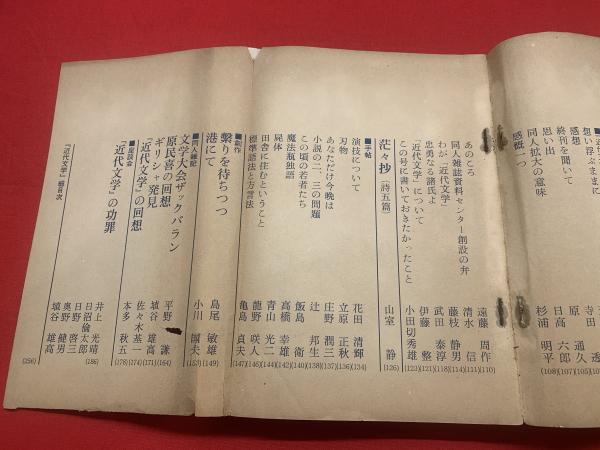 想い浮ぶままに
感想
終刊を聞いて
思い出
同人拡大の意味
感慨一つ
寺田
原 通久
日高 六郎
杉浦 明平
(105)
(107)
(108)
あのころ 遠藤 周作 (110)
同人雑誌資料センター創設の弁 清水 信 (111)
わが「近代文学」 藤枝 静男 (114)
忠勇なる諸氏よ 武田 泰淳 (118)
「近代文学」について 伊藤 整 (121)
この号に書いておきたかったこと 小田切秀雄 (123)
茫々抄〔詩五篇〕 山室 静 (126)
■手帖
演技について 花田 清輝 (134)
刃物 立原 正秋 (136)
あなただけ今晩は 庄野 潤三 (137)
小説の二、三の問題 辻 邦生 (138)
この頃の若者たち 飯島 衛 (140)
魔法瓶独語 高橋 幸雄 (142)
屍体 青山 光二 (144)
田舎に住むということ 龍野 咲人 (146)
標準語法と方言法 亀島 貞夫 (147)
■創作
繫りを待ちつつ 島尾 敏雄 (149)
港にて 小川 国夫 (153)
■同人雑記
文学大会ザックバラン 平野 謙 (164)
原民喜の回想 埴谷 雄高 (171)
ギリシャ発見 佐々木基一 (174)
「近代文学」の回想 本多 秋五 (178)
■座談会
「近代文学」の功罪
井上 光晴
日沼倫太郎
日野 啓三
奥野 健男
埴谷 雄高
(186)
「近代文学」細目次 (256)